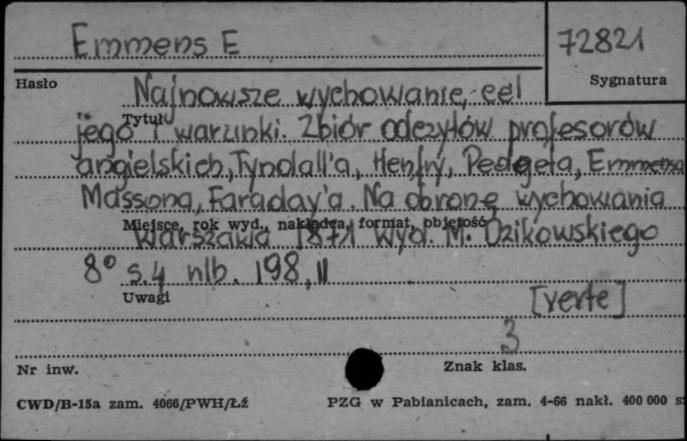 Emmens E
72821
Hasło
Sygnatura
Najnowsze wychowanie, cel
Tytuł
jego i warunki. Zbiór odczytów profesorów
angielskich, Tyndall'a, Henfry, Pedgeta, Emmensa
Massona, Faraday'a. Na obronę wychowania
Miejsce, rok wyd., nakładca, format, objętość
Warszawa 1871 wyd. M. Dzikowskiego
8° s. 4 nlb. 198, II
Uwagi
[verte]
3
Nr inw.
Znak klas.
CWD/B-15a zam. 4066/PWH/Łź
PZG w Pabianicach, zam. 4-66 nakł. 400 000